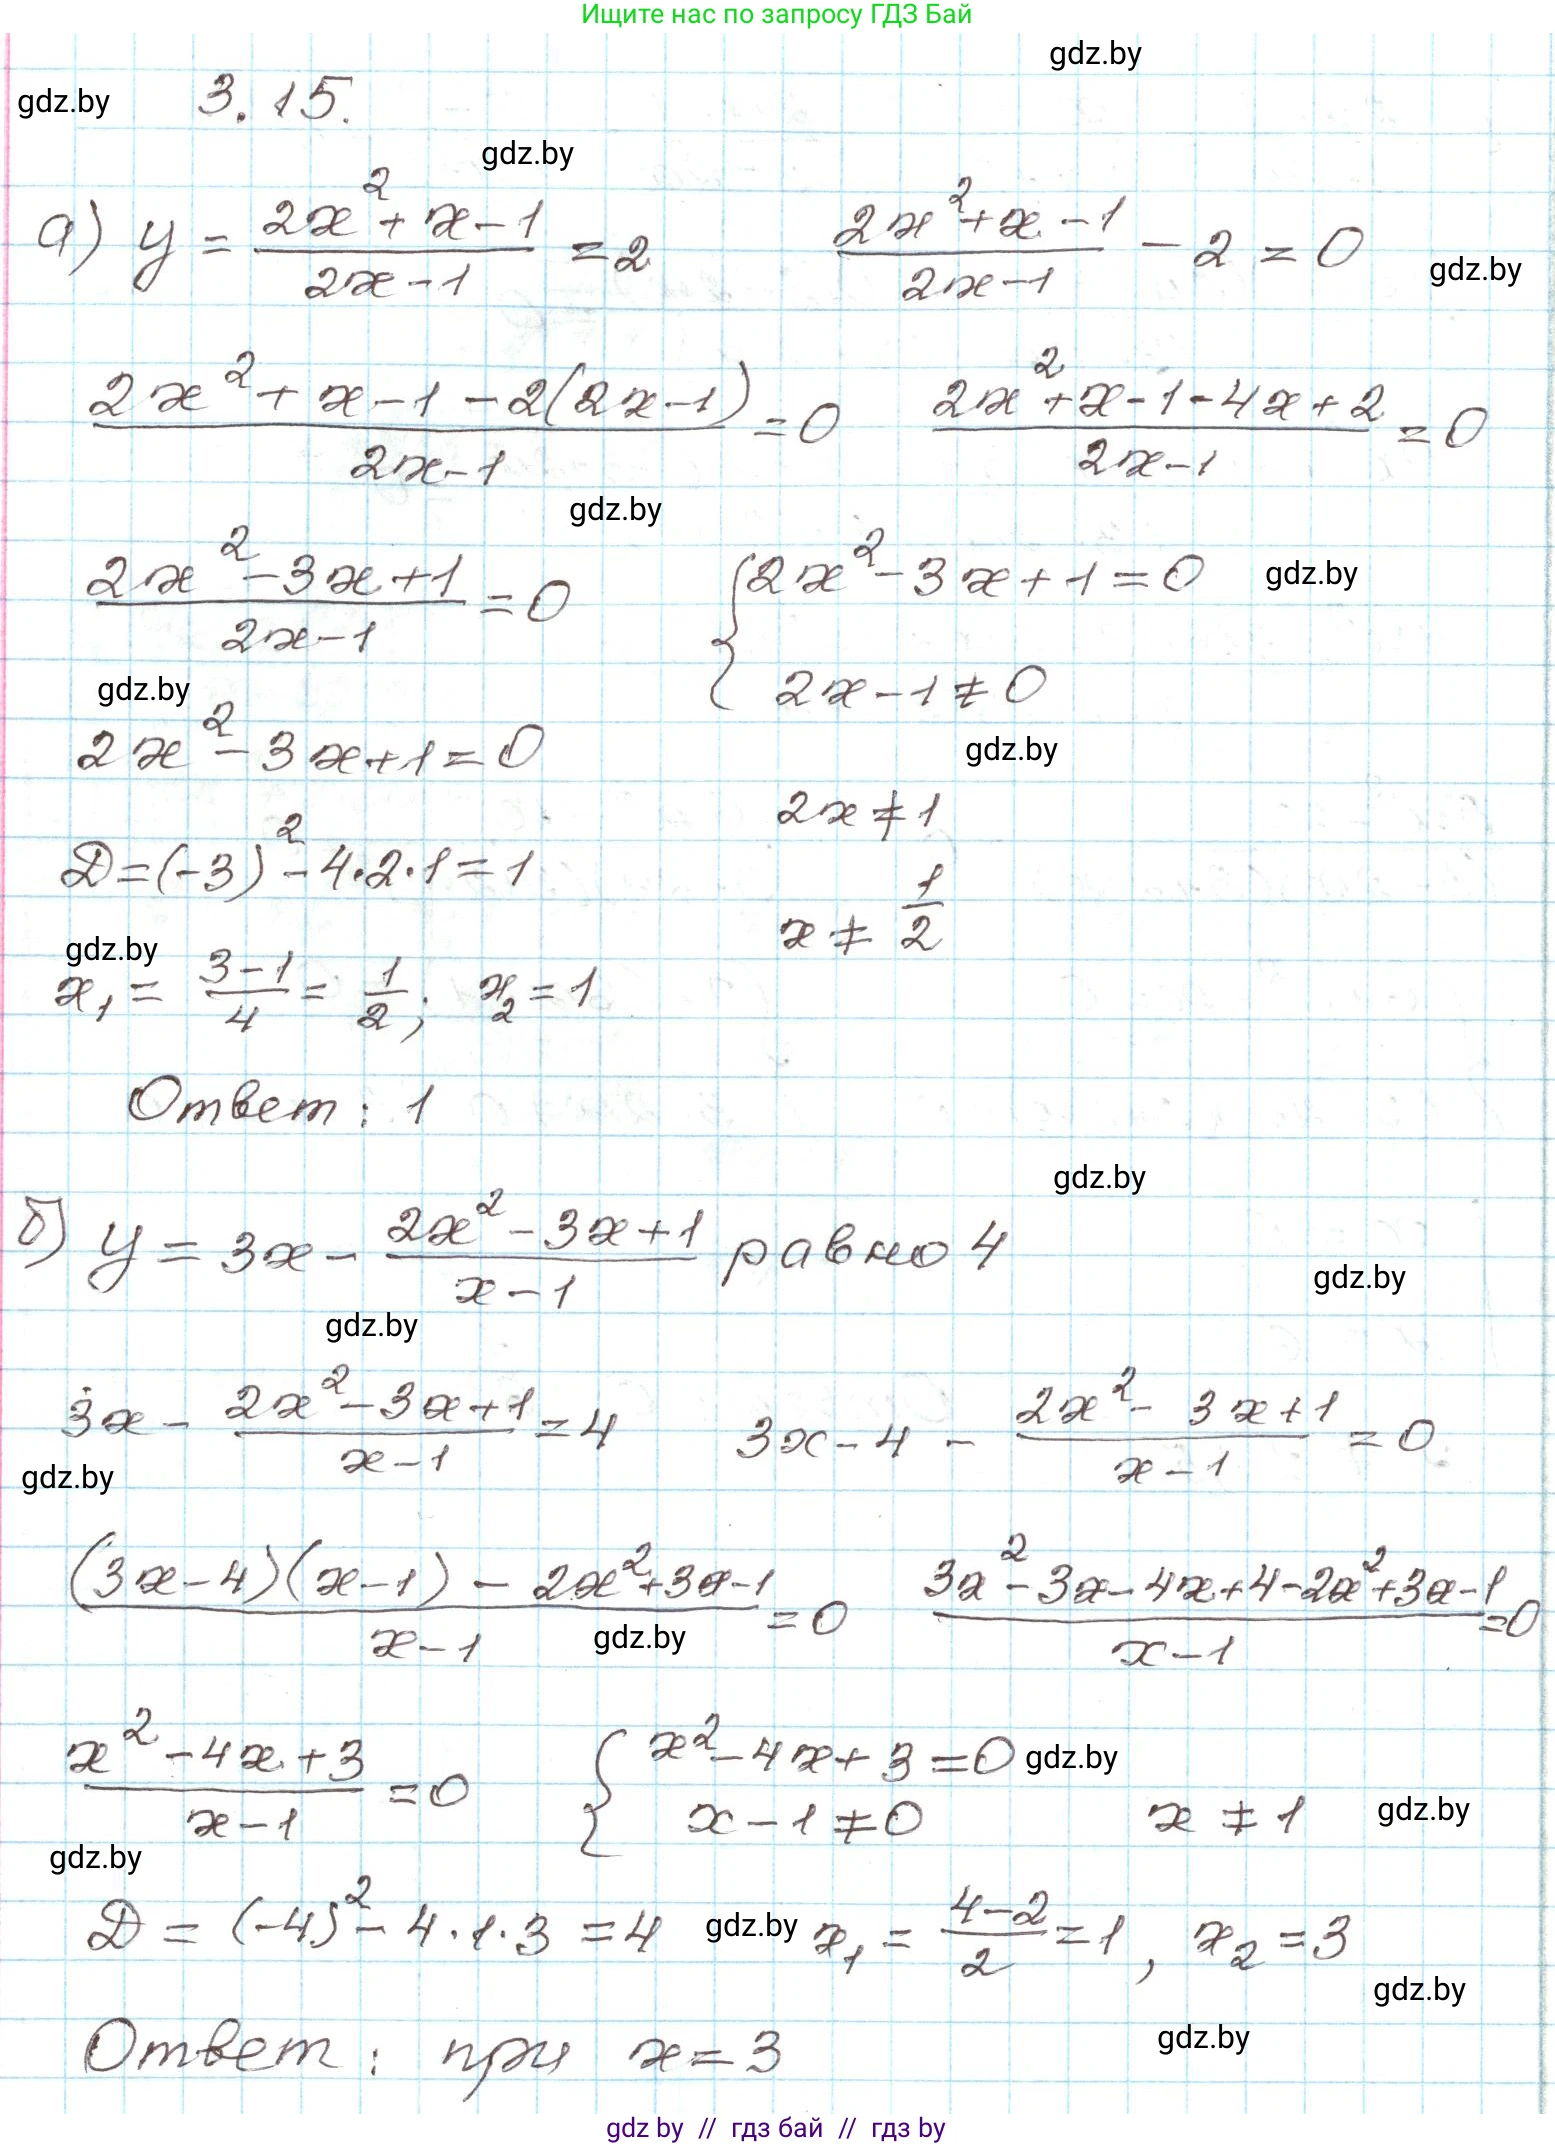 Ищите нас по запросу ГДЗ Бай
gdz.by
gdz.by 3.15.
gdz.by
а) y = (2x² + x - 1)/(2x - 1) = 2 (2x² + x - 1)/(2x - 1) - 2 = 0
gdz.by
(2x² + x - 1 - 2(2x - 1))/(2x - 1) = 0 (2x² + x - 1 - 4x + 2)/(2x - 1) = 0
gdz.by
(2x² - 3x + 1)/(2x - 1) = 0 { 2x² - 3x + 1 = 0 gdz.by
2x - 1 ≠ 0
gdz.by
2x² - 3x + 1 = 0 gdz.by
2x ≠ 1
Д = (-3)² - 4·2·1 = 1
x ≠ 1/2
gdz.by
x₁ = (3 - 1)/4 = 1/2; x₂ = 1
Ответ: 1
gdz.by
б) y = 3x - (2x² - 3x + 1)/(x - 1) равно 4
gdz.by
gdz.by
3x - (2x² - 3x + 1)/(x - 1) = 4 3x - 4 - (2x² - 3x + 1)/(x - 1) = 0
gdz.by
((3x - 4)(x - 1) - 2x² + 3x - 1)/(x - 1) = 0 (3x² - 3x - 4x + 4 - 2x² + 3x - 1)/(x - 1) = 0
gdz.by
(x² - 4x + 3)/(x - 1) = 0 { x² - 4x + 3 = 0 gdz.by
x - 1 ≠ 0 x ≠ 1 gdz.by
gdz.by
Д = (-4)² - 4·1·3 = 4 gdz.by x₁ = (4 - 2)/2 = 1, x₂ = 3
gdz.by
Ответ: при x = 3 gdz.by
gdz by // гдз бай // гдз by